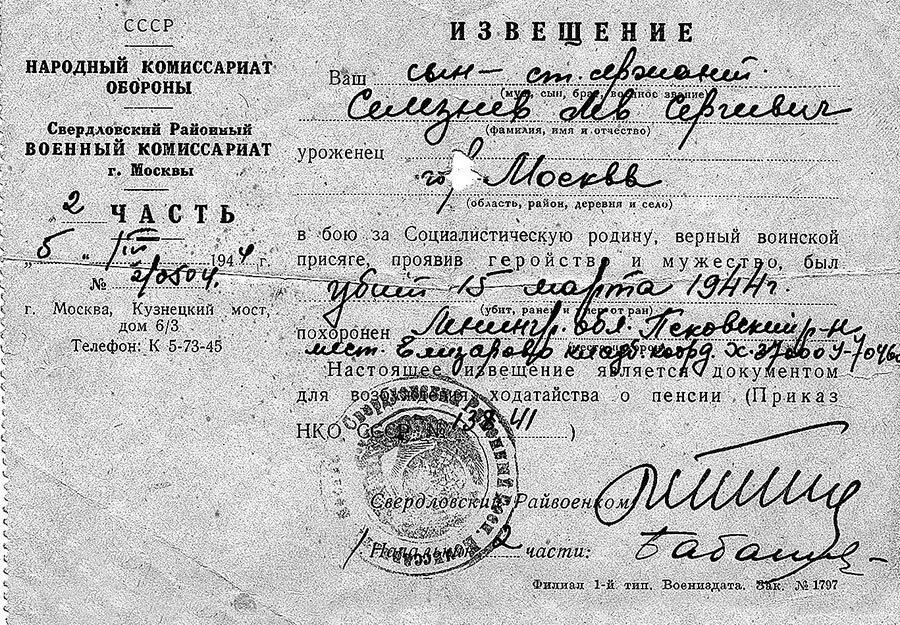 СССР
НАРОДНЫЙ КОМИССАРИАТ
ОБОРОНЫ
Свердловский Районный
ВОЕННЫЙ КОМИССАРИАТ
г. Москвы
2 ЧАСТЬ
„5 “ IV 1944 г.
№ 2/0504.
г. Москва, Кузнецкий мост,
дом 6/3
Телефон: К 5-73-45
ИЗВЕЩЕНИЕ
Ваш сын – ст. сержант
(муж, сын, брат, военное звание)
Селезнев Лев Сергеевич
(фамилия, имя и отчество)
уроженец
гор Москвы
(область, район, деревня и село)
в бою за Социалистическую родину, верный воинской
присяге, проявив геройство и мужество, был
убит 15 марта 1944 г.
(убит, ранен и умер от ран)
похоронен Ленингр. обл. Псковский р-н
мест. Елизарово кладб. коорд. Х-
Настоящее извещение является документом
для возбуждения ходатайства о пенсии (Приказ
НКО СССР № 138 41 )
Свердловский Райвоенком
Начальник 2 части:
Филиал 1-й тип. Воениздата. Зак. № 1797